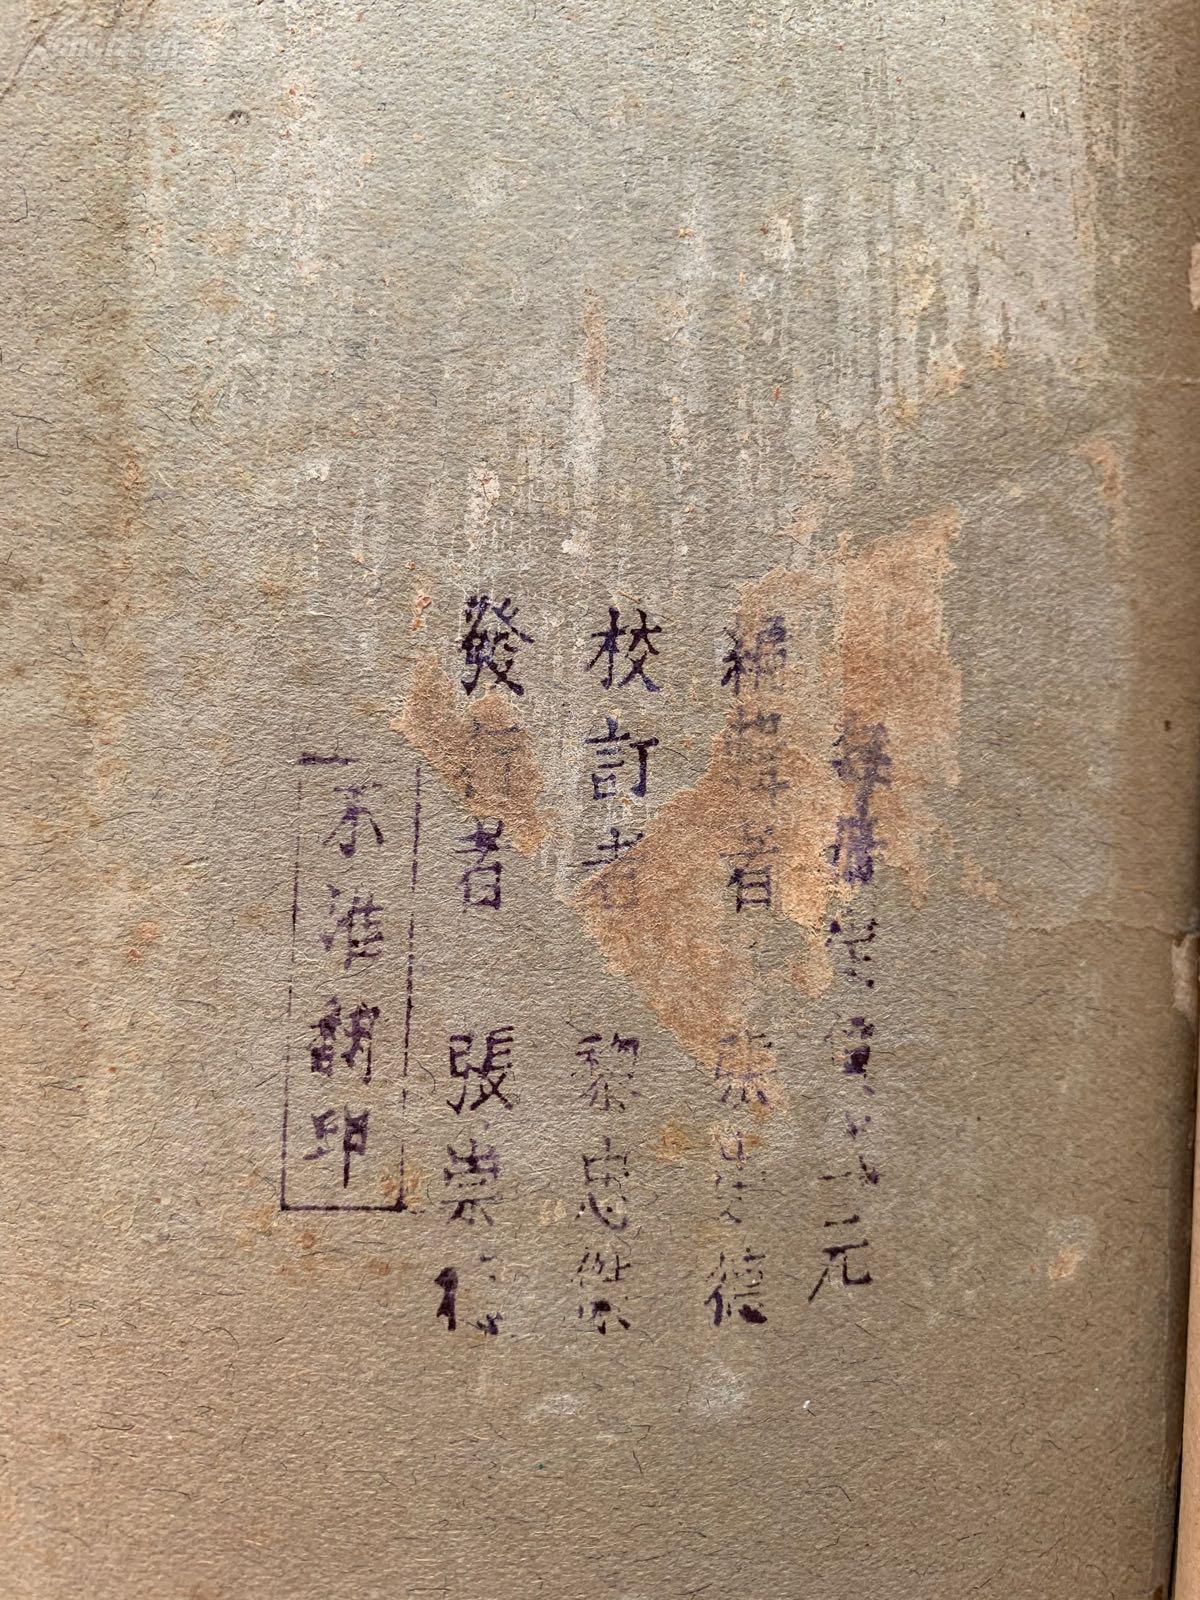 每書實價 元
編輯者 張崇德
校訂者 黎忠傑
發行者 張崇德
不准翻印